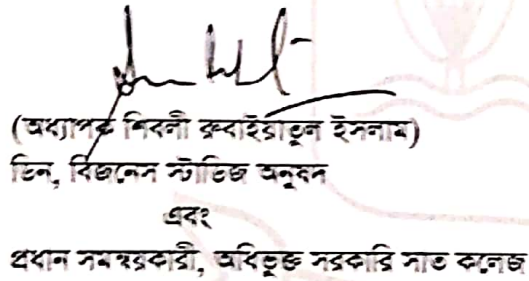 (অধ্যাপক শিবলী রুবাইয়াতুল ইসলাম)
ডিন, বিজনেস স্টাডিজ অনুষদ
এবং
প্রধান সমন্বয়কারী, অধিভুক্ত সরকারি সাত কলেজ